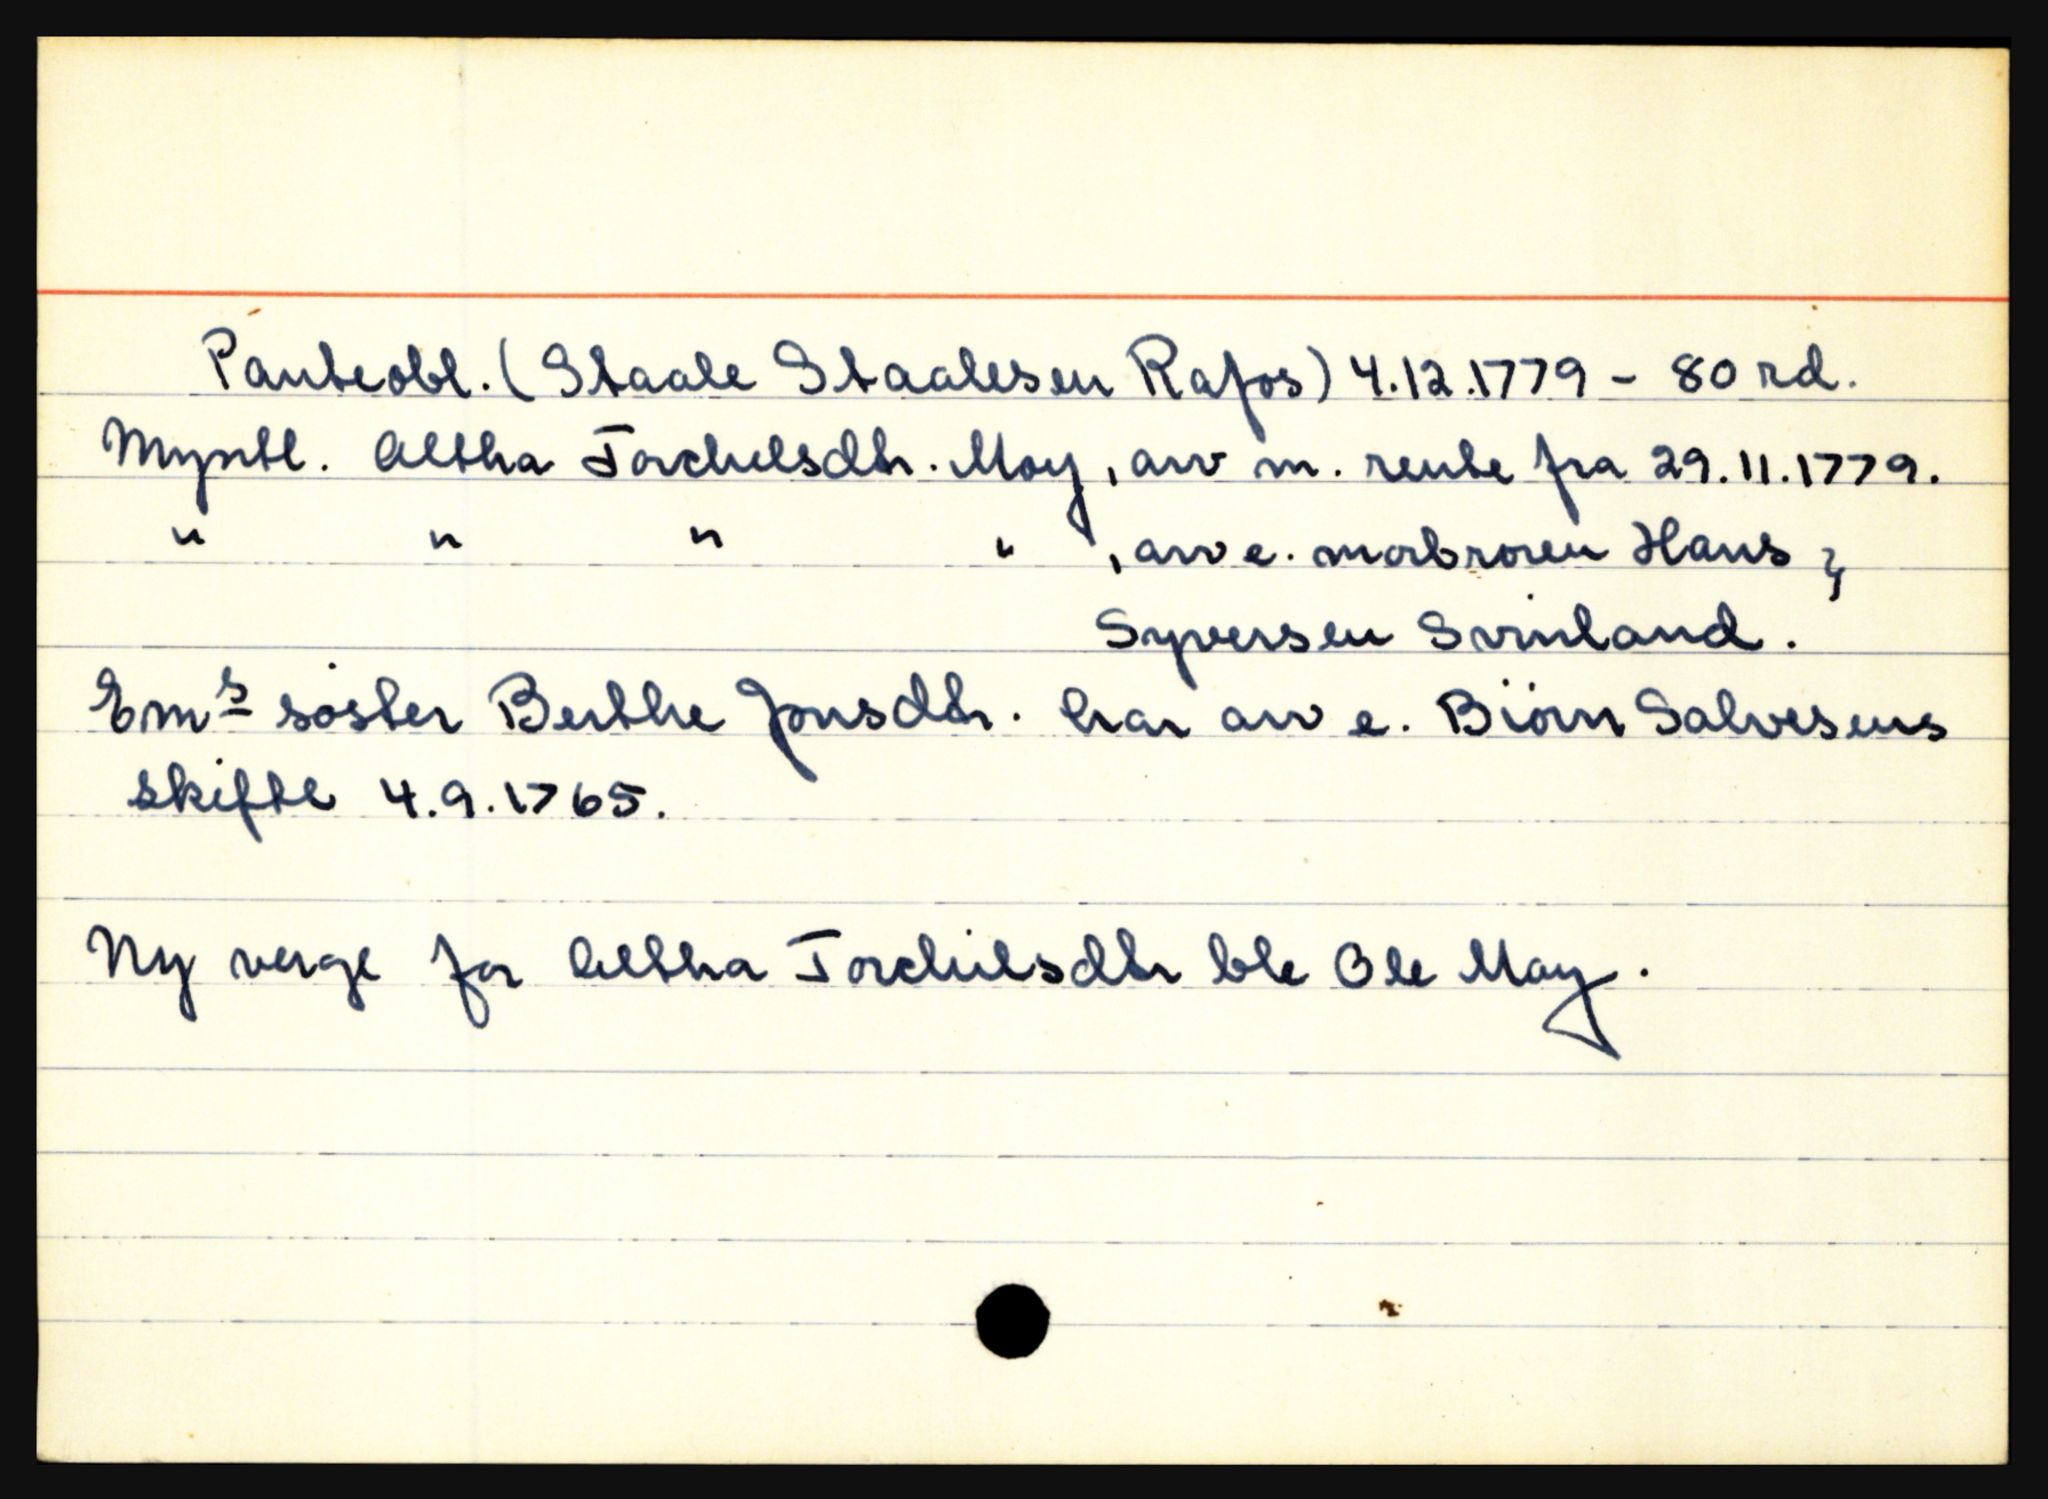 Panteobl. (Staale Staalesen Rafos) 4.12.1779 - 80 rd.
Myntl. Altha Torchelsdtr. Moy, arv m. rente fra 29.11.1779.
" " " " , arv e. morbroren Hans
Syversen Svinland.
Em<u>s</u> søster Berthe Jonsdtr. har arv e. Biörn Salvesens
skifte 4.9.1765.
Ny verge for Altha Torchilsdtr ble Ole May.